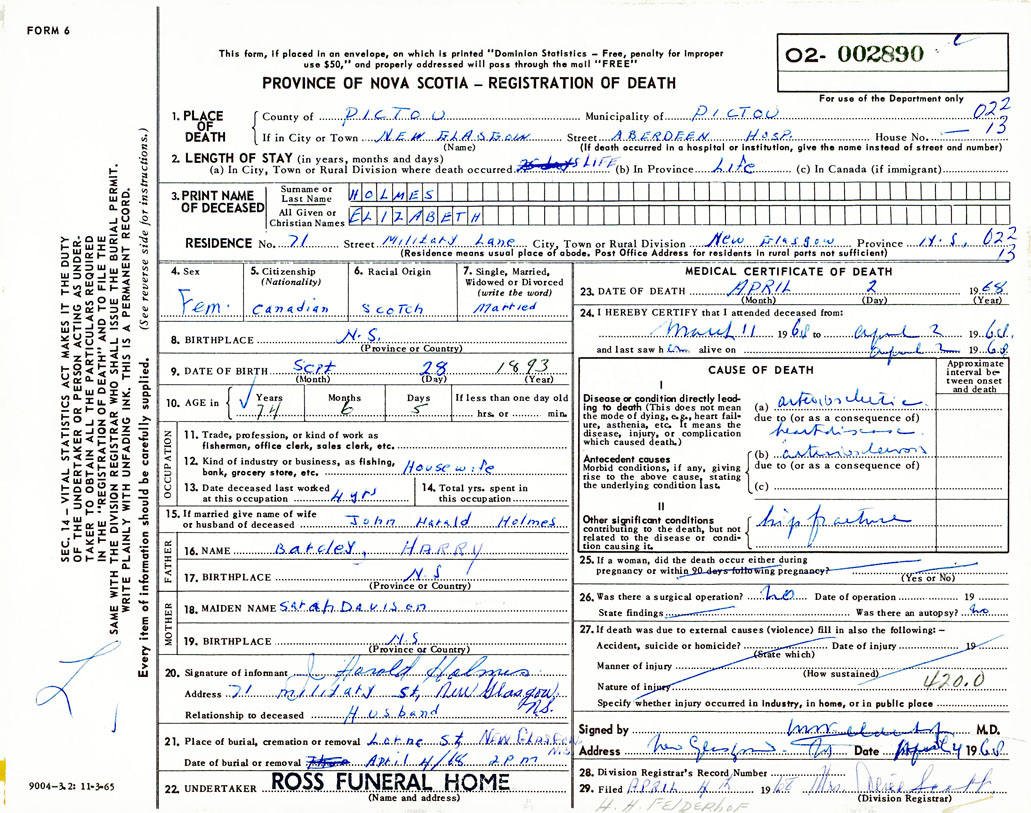 FORM 6
This form, if placed in an envelope, on which is printed "Dominion Statistics – Free, penalty for improper
use $50," and properly addressed will pass through the mail "FREE"
O2- 002890
PROVINCE OF NOVA SCOTIA – REGISTRATION OF DEATH
For use of the Department only
022
13
1. PLACE OF DEATH
County of PICTOU Municipality of PICTOU
If in City or Town NEW GLASGOW Street ABERDEEN HOSP. House No. —
(Name) (If death occurred in a hospital or institution, give the name instead of street and number)
2. LENGTH OF STAY (in years, months and days)
(a) In City, Town or Rural Division where death occurred LIFE (b) In Province Life (c) In Canada (if immigrant)
3. PRINT NAME OF DECEASED
Surname or Last Name HOLMES
All Given or Christian Names ELIZABETH
RESIDENCE No. 71 Street Military Lane City, Town or Rural Division New Glasgow Province N.S. 022
(Residence means usual place of abode. Post Office Address for residents in rural parts not sufficient) 13
4. Sex Fem.
5. Citizenship (Nationality) Canadian
6. Racial Origin Scotch
7. Single, Married, Widowed or Divorced (write the word) Married
8. BIRTHPLACE N.S.
(Province or Country)
9. DATE OF BIRTH Sept 28 1893
(Month) (Day) (Year)
10. AGE in Years 74 Months 6 Days 5 If less than one day old hrs. or min.
OCCUPATION
11. Trade, profession, or kind of work as
fisherman, office clerk, sales clerk, etc.
12. Kind of industry or business, as fishing,
bank, grocery store, etc. Housewife
13. Date deceased last worked
at this occupation 4 yrs
14. Total yrs. spent in
this occupation
15. If married give name of wife
or husband of deceased John Harald Holmes
FATHER
16. NAME Barcley, HARRY
17. BIRTHPLACE N.S
(Province or Country)
MOTHER
18. MAIDEN NAME Sarah Davison
19. BIRTHPLACE N.S
(Province or Country)
20. Signature of informant J Harold Holmes
Address 71 military St, New Glasgow
N.S.
Relationship to deceased Husband
21. Place of burial, cremation or removal Lorne St NEW GLASGOW
N.S
Date of burial or removal April 4/68 2 PM
22. UNDERTAKER ROSS FUNERAL HOME
(Name and address)
MEDICAL CERTIFICATE OF DEATH
23. DATE OF DEATH APRIL 2 1968
(Month) (Day) (Year)
24. I HEREBY CERTIFY that I attended deceased from:
March 11 1968 to April 2 1968
and last saw her alive on April 2 1968
CAUSE OF DEATH
Approximate interval between onset and death
I
Disease or condition directly leading
to death (This does not mean
the mode of dying, e.g., heart failure,
asthenia, etc. It means the
disease, injury, or complication
which caused death.)
(a) arteriosclerotic
due to (or as a consequence of)
heart disease
Antecedent causes
Morbid conditions, if any, giving
rise to the above cause, stating
the underlying condition last.
(b) arteriosclerosis
due to (or as a consequence of)
(c)
II
Other significant conditions
contributing to the death, but not
related to the disease or condition
causing it.
hip fracture
25. If a woman, did the death occur either during
pregnancy or within 90 days following pregnancy?
(Yes or No)
26. Was there a surgical operation? no Date of operation 19
State findings Was there an autopsy? no
27. If death was due to external causes (violence) fill in also the following: –
Accident, suicide or homicide? Date of injury 19
(State which)
Manner of injury
(How sustained)
Nature of injury 420.0
Specify whether injury occurred in industry, in home, or in public place
Signed by M.D.
Address New Glasgow Date April 4 1968
28. Division Registrar's Record Number
29. Filed APRIL 4 1968 Mrs. Scott
(Division Registrar)
H. H. FELDERHOF
SEC. 14 – VITAL STATISTICS ACT MAKES IT THE DUTY
OF THE UNDERTAKER OR PERSON ACTING AS UNDER-
TAKER TO OBTAIN ALL THE PARTICULARS REQUIRED
IN THE "REGISTRATION OF DEATH" AND TO FILE THE
SAME WITH THE DIVISION REGISTRAR WHO SHALL ISSUE THE BURIAL PERMIT.
WRITE PLAINLY WITH UNFADING INK. THIS IS A PERMANENT RECORD.
Every item of information should be carefully supplied. (See reverse side for instructions.)
9004-3.2: 11-3-65